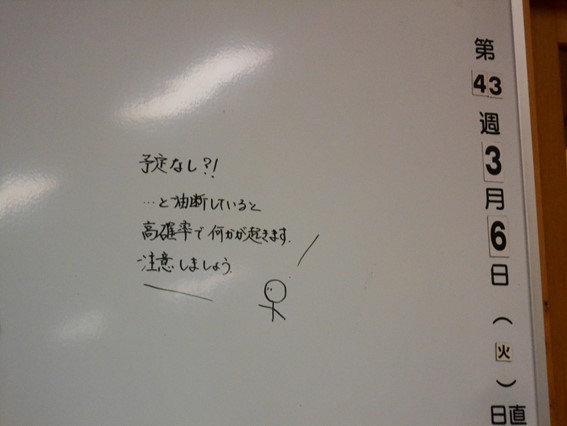 第43週3月6日(火)
日直
予定なし?!
…と油断していると
高確率で何かが起きます.
注意しましょう.